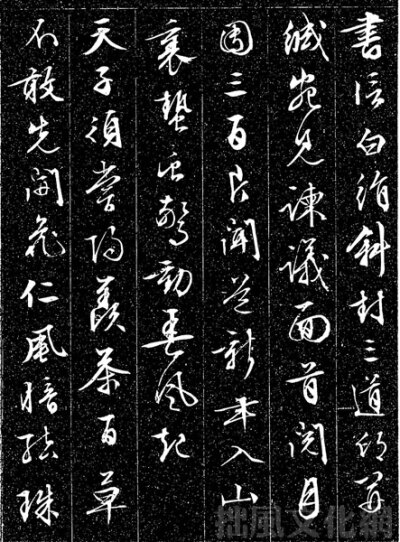 書信白絹斜封三道印開
緘宛見諫議面首閱月
團三百片聞道新年入山
裏蟄虫驚動春風起
天子須嘗陽羨茶百草
不敢先開花仁風暗結珠
拙風文化網